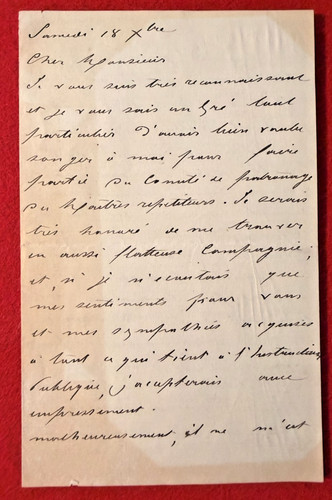 Samedi 18 Xbre
Cher Monsieur
Je vous suis très reconnaissant
et je vous sais un gré tout
particulier d'avoir bien voulu
songer à moi pour faire
partie du Comité de patronage
des Maîtres répétiteurs. Je serais
très honoré de me trouver
en aussi flatteuse Compagnie,
et, si je n'écoutais que
mes sentiments pour vous
et mes sympathies acquises
à tout ce qui tient à l'Instruction
Publique, j'accepterais avec
empressement.
malheureusement, il ne m'est